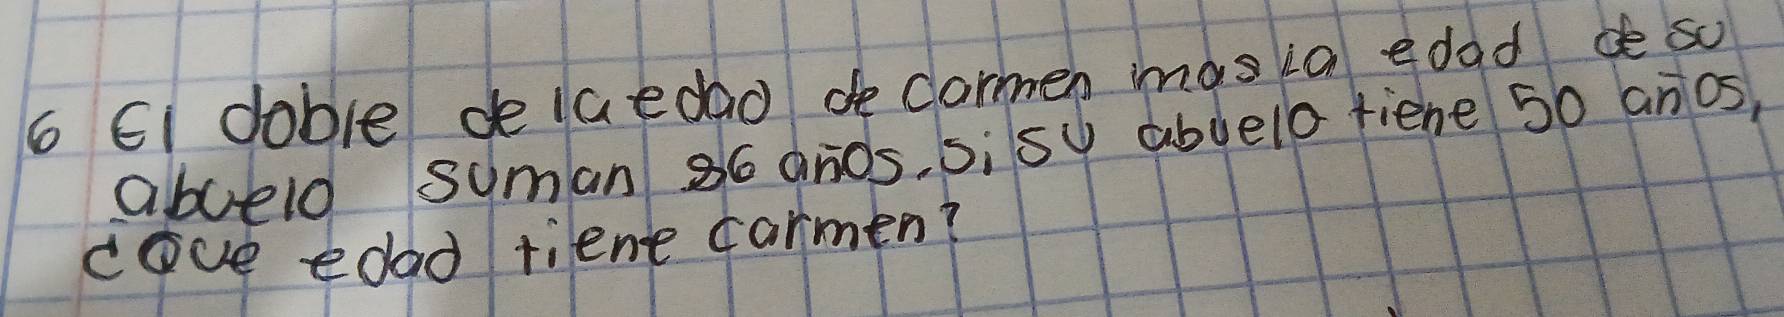 6 El doble de la edad de carmen mas la edad de su
abuelo suman 86 años. si su abuelo tiene 50 años,
¿Que edad tiene carmen?